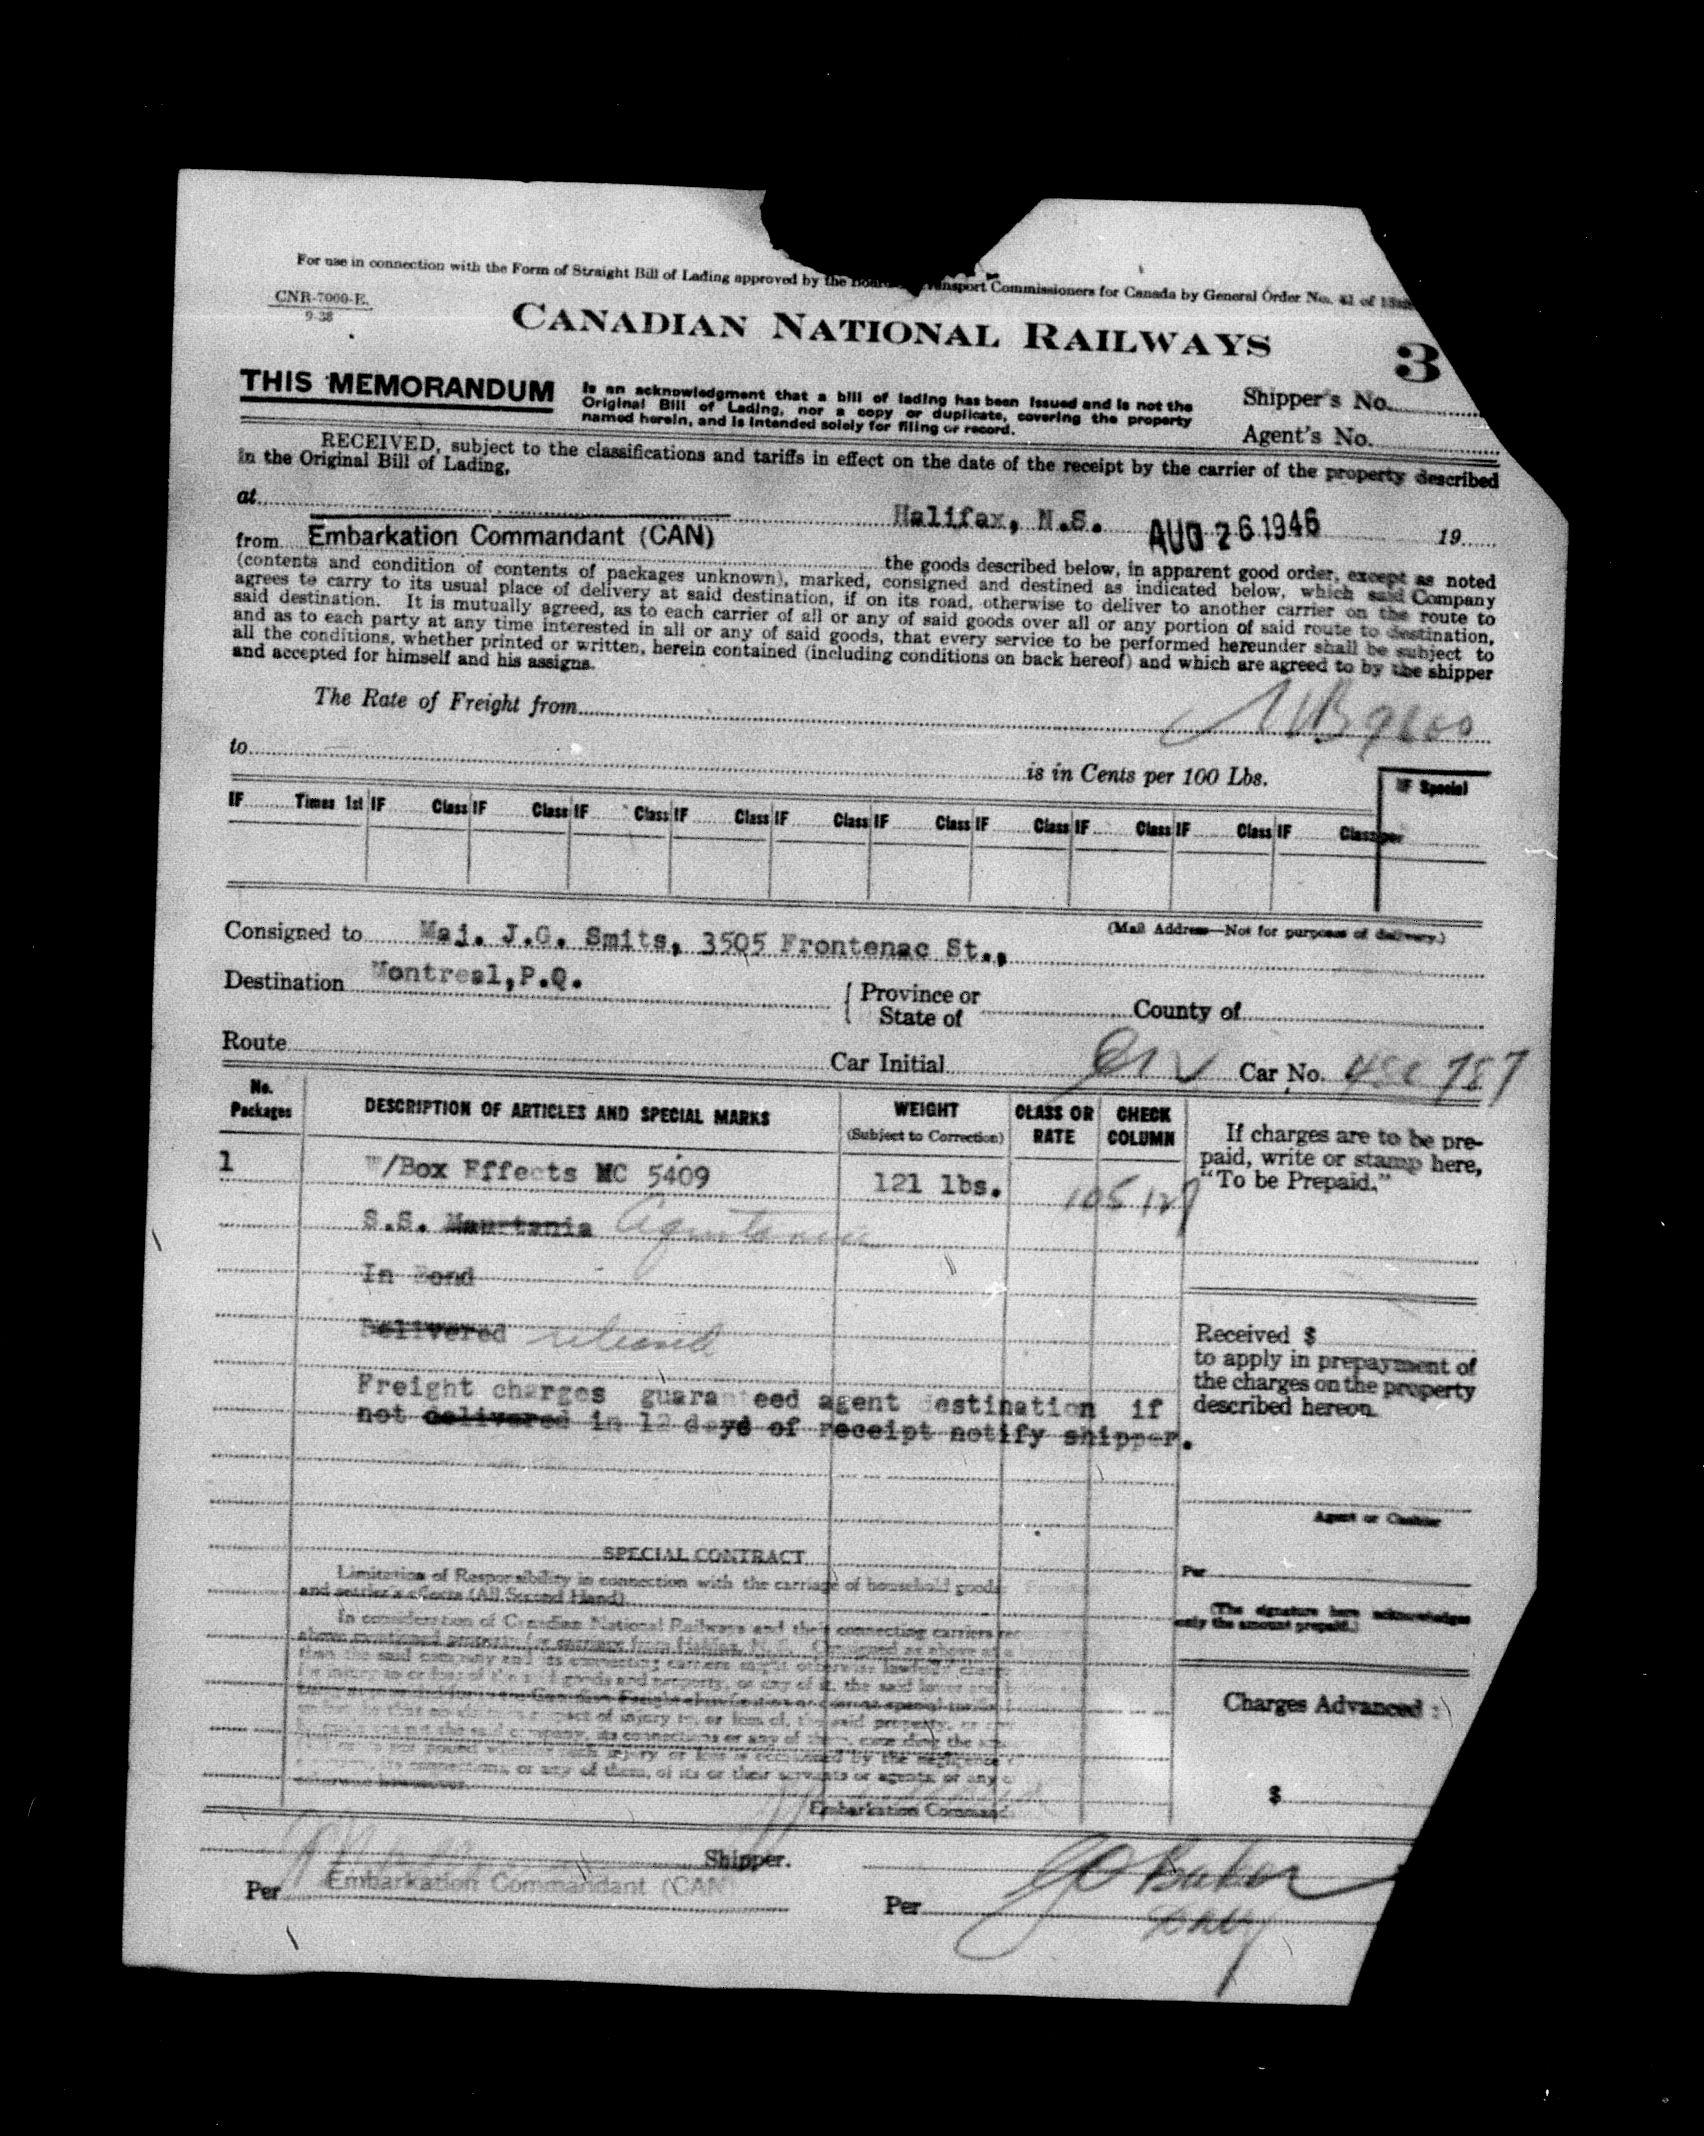 For use in connection with the Form of Straight Bill of Lading approved by the Board Transport Commissioners for Canada by General Order No. 41 of
CNR-7000-E.
9-38
CANADIAN NATIONAL RAILWAYS
3
THIS MEMORANDUM
is an acknowledgment that a bill of lading has been issued and is not the
Original Bill of Lading, nor a copy or duplicate, covering the property
named herein, and is intended solely for filing or record.
Shipper's No.
Agent's No.
RECEIVED, subject to the classifications and tariffs in effect on the date of the receipt by the carrier of the property described
in the Original Bill of Lading,
at Halifax, N.S. AUG 26 1946 19
from Embarkation Commandant (CAN)
the goods described below, in apparent good order, except as noted
(contents and condition of contents of packages unknown), marked, consigned and destined as indicated below, which said Company
agrees to carry to its usual place of delivery at said destination, if on its road, otherwise to deliver to another carrier on the route to
said destination. It is mutually agreed, as to each carrier of all or any of said goods over all or any portion of said route to destination,
and as to each party at any time interested in all or any of said goods, that every service to be performed hereunder shall be subject to
all the conditions, whether printed or written, herein contained (including conditions on back hereof) and which are agreed to by the shipper
and accepted for himself and his assigns.
The Rate of Freight from
to is in Cents per 100 Lbs.
IF Special
IF Times 1st IF Class IF Class IF Class IF Class IF Class IF Class IF Class IF Class IF Class IF Class per
Consigned to Maj. J.G. Smits, 3505 Frontenac St.,
(Mail Address—Not for purposes of delivery.)
Destination Montreal,P.Q.
Province or
State of
County of
Route Car Initial Car No. 787
No.
Packages
DESCRIPTION OF ARTICLES AND SPECIAL MARKS
WEIGHT
(Subject to Correction)
CLASS OR
RATE
CHECK
COLUMN
If charges are to be pre-
paid, write or stamp here,
"To be Prepaid."
1 W/Box Effects MC 5409 121 lbs. 105 127
S.S. Maurtania Aquitania
In Bond
Delivered released
Freight charges guaranteed agent destination if
not delivered in 12 days of receipt notify shipper.
Received $
to apply in prepayment of
the charges on the property
described hereon.
Agent or Cashier
Per
(The signature here acknowledges
only the amount prepaid.)
Charges Advanced:
$
SPECIAL CONTRACT
Limitation of Responsibility in connection with the carriage of household goods
and settler's effects (All Second Hand)
In consideration of Canadian National Railways and their connecting carriers
above mentioned property for carriage from Halifax, N.S. Consigned as above at a
than the said company and its connecting carriers might otherwise lawfully charge
for injury to or loss of the said goods and property, or any of it, the said
of injury to, or loss of, the said property, or
the said company, its connections or any of them,
not pound whether such injury or loss is occasioned by the negligence
connections, or any of them, of its or their servants or agents, or any
Embarkation Command
Shipper.
Per Embarkation Commandant (CAN)
Per
Baker